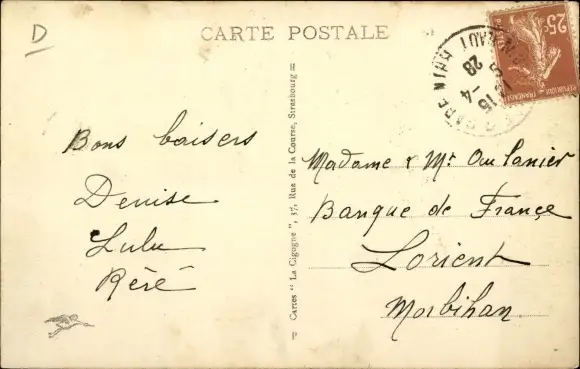 D
CARTE POSTALE
25c
REPUBLIQUE FRANÇAISE
16 -4
28
Bons baisers
Denise
Lulu
Réré
Cartes " La Cigogne ", 37, Rue de la Course, Strasbourg
P
Madame & Mr
Banque de France
Lorient
Morbihan